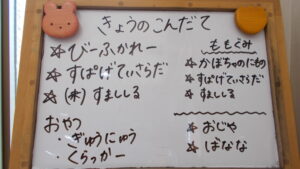 きょうのこんだて
☆ びーふかれー
☆ すぱげてぃさらだ
☆ (米) すましじる
おやつ
・ぎゅうにゅう
・くらっかー
ももぐみ
☆ かぼちゃのにもの
☆ すぱげてぃさらだ
☆ すましじる
☆ おじや
☆ ばなな